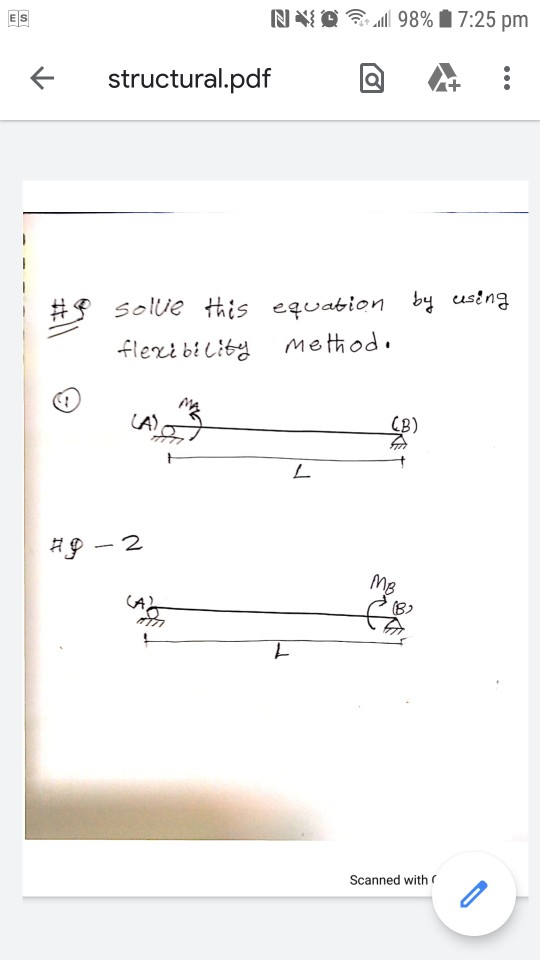 ES 98% 7:25 pm
structural.pdf
#Q solve this equation by using
flexibility method.
(1)
MA
(A) (B)
L
#Q - 2
MB
(A) (B)
L
Scanned with C